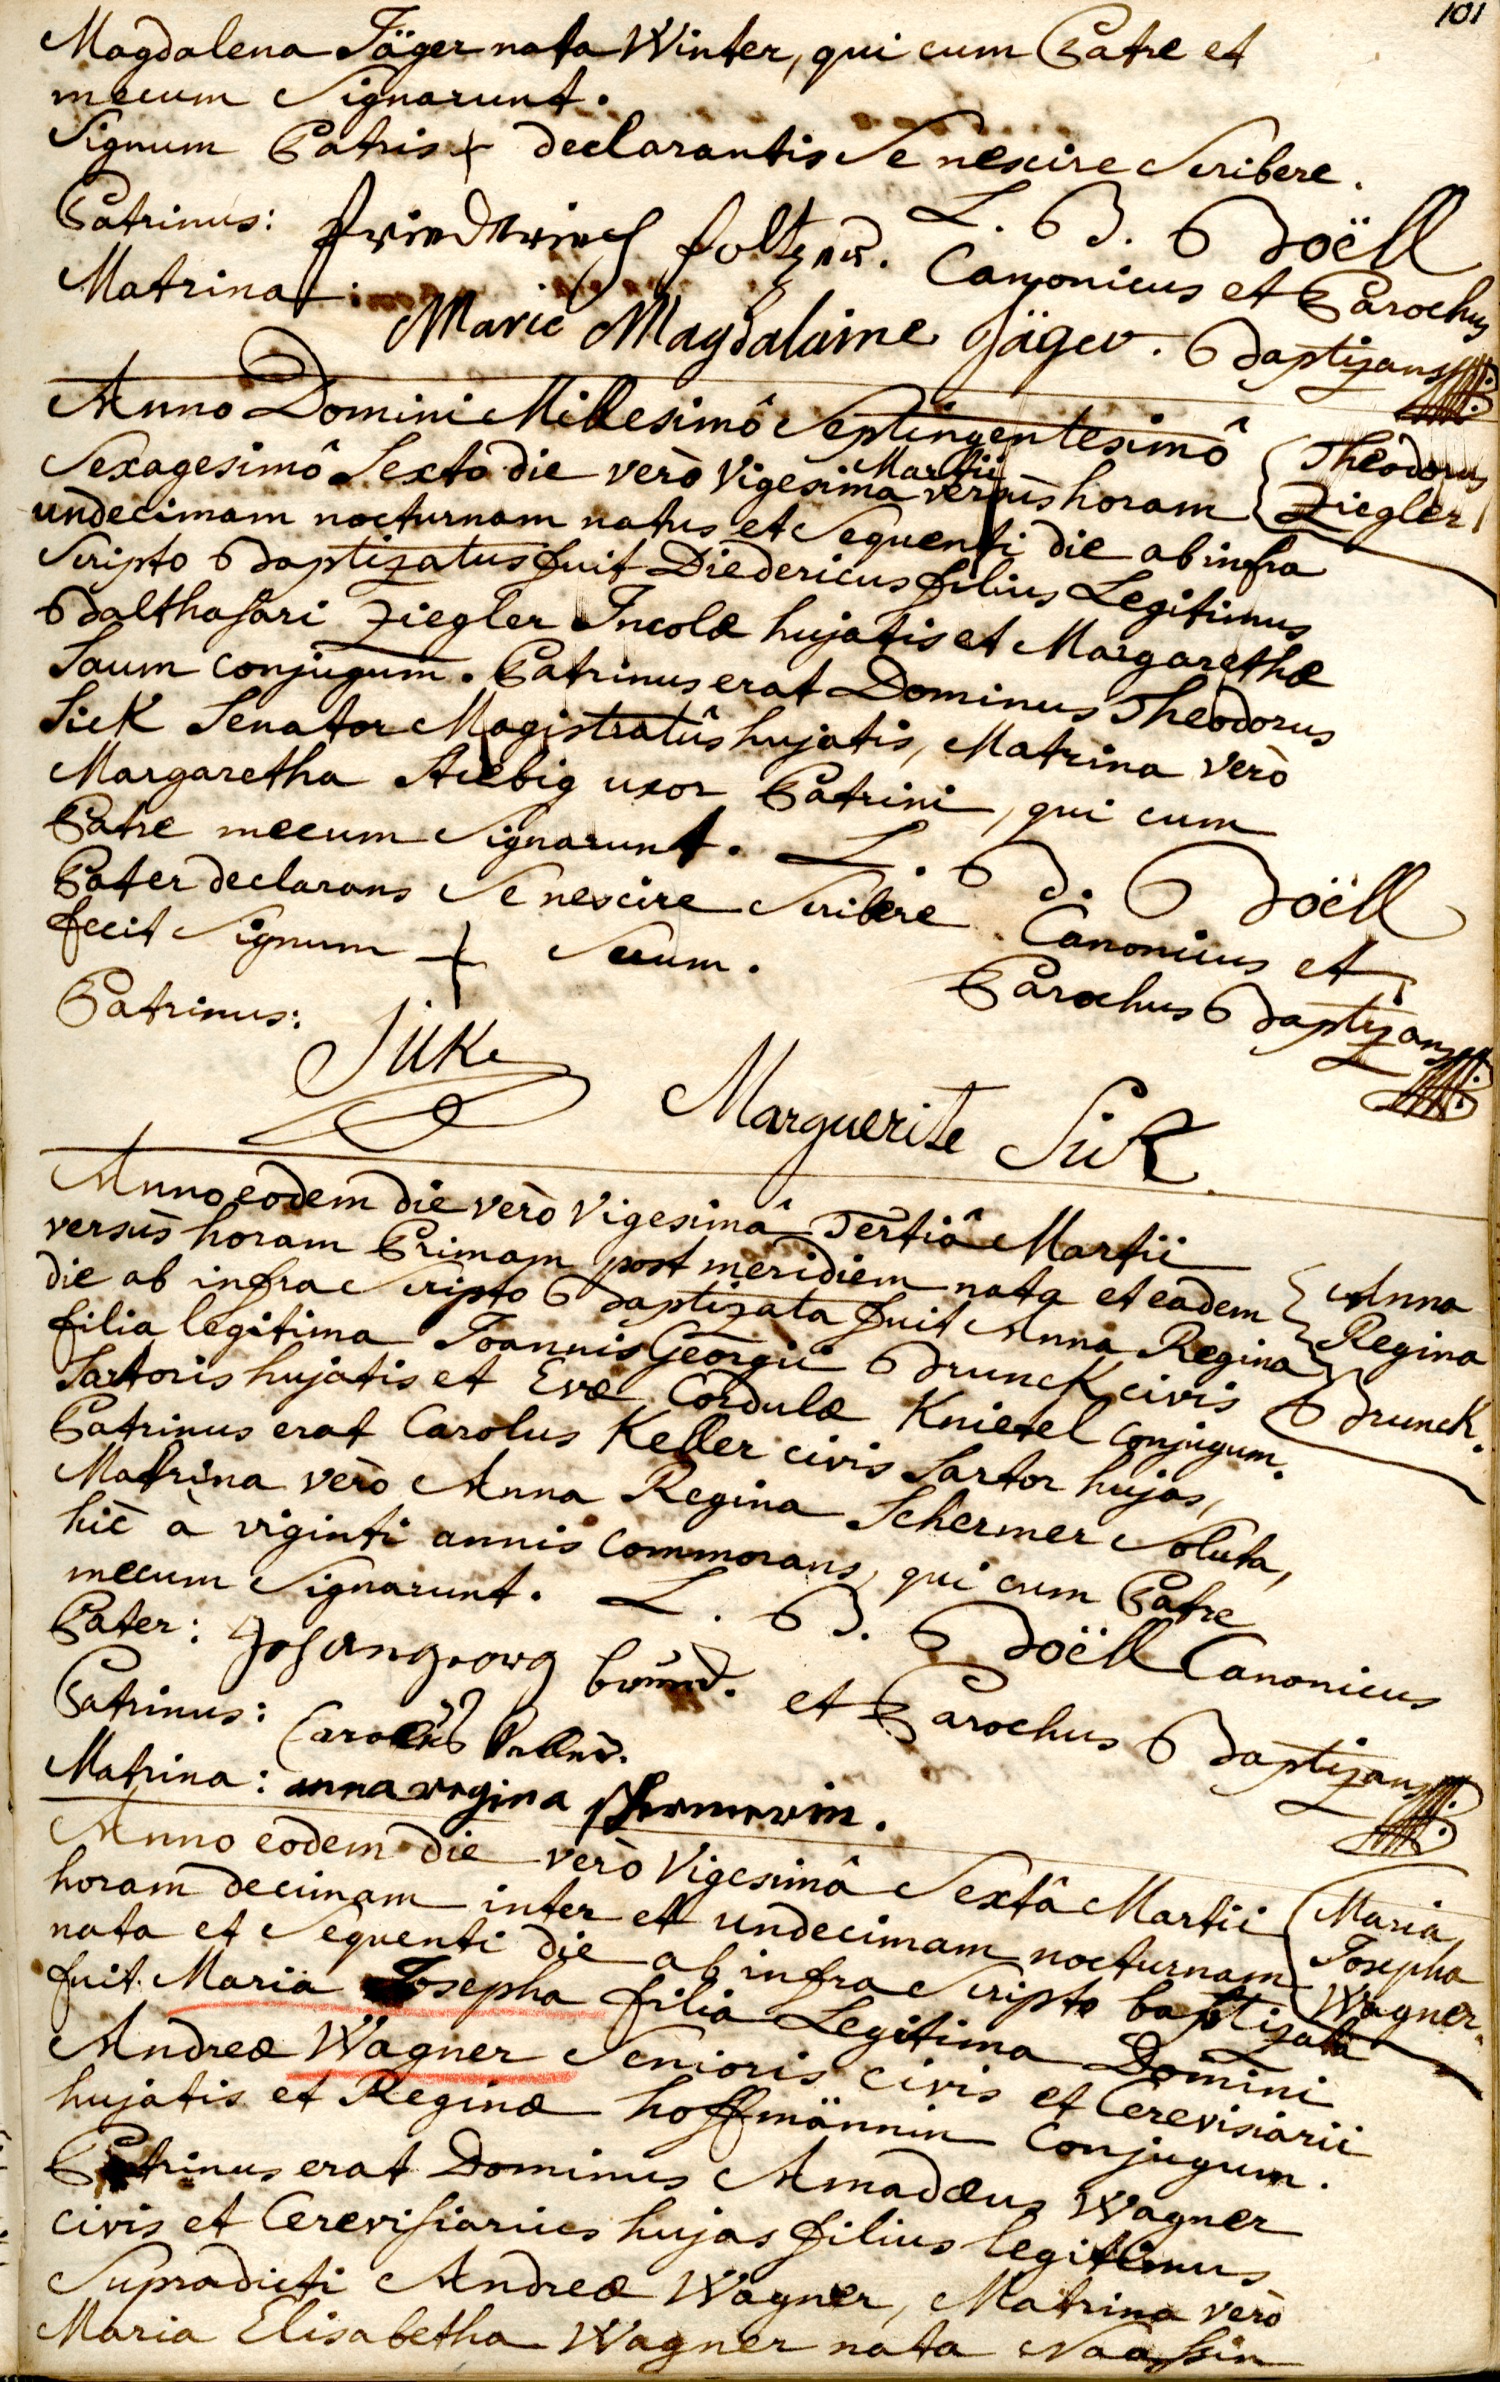 101
Magdalena Jäger nata Winter, qui cum Patre et
mecum Signarunt.
Signum Patris + declarantis Se nescire Scribere.
L. B. Boëll
Patrinus: friedterich foltzer. Canonicus et Parochus
Matrina: Marie Magdalaine Jäger. Baptizans
Anno Domini Millesimô Septingentesimô
Sexagesimô Sexto die verò Vigesima Martii versùs horam
Theodorus
Ziegler
undecimam nocturnam natus et Sequenti die ab infra
Scripto Baptizatus fuit Diedericus filius Legitimus
Balthasari Ziegler Incolæ hujatis et Margarethæ
Saum conjugum. Patrinus erat Dominus Theodorus
Sick Senator Magistratûs hujatis, Matrina verò
Margaretha Stiebig uxor Patrini, qui cum
Patre mecum Signarunt. L. B. Boëll
Pater declarans Se nescire Scribere Canonicus et
fecit Signum + Suum. Parochus Baptizans
Patrinus: Sick
Marguerite Sick
Anno eodem die verò Vigesimâ Tertiâ Martii
versùs horam Primam post meridiem nata et eadem
Anna
Regina
Brunck.
die ab infra Scripto Baptizata fuit Anna Regina
filia legitima Joannis Georgii Brunck civis
Sartoris hujatis et Evæ Cordulæ Knietel conjugum.
Patrinus erat Carolus Keller civis Sartor hujas,
Matrina verò Anna Regina Schermer Soluta,
hic à viginti annis commorans, qui cum Patre
mecum Signarunt. L. B. Boëll Canonicus
Pater: Johan georg
et Parochus Baptizans
Patrinus: Carolus Keller.
Matrina: anna regina schermerin.
Anno eodem die verò Vigesimâ Sextâ Martii
Maria
Josepha
Wagner.
horam decimam inter et undecimam nocturnam
nata et Sequenti die ab infra Scripto baptizata
fuit Maria Josepha filia Legitima Domini
Andreæ Wagner Senioris civis et Cerevisiarii
hujatis et Reginæ hoffmännin Conjugum.
Patrinus erat Dominus Amadæus Wagner
civis et Cerevisiarius hujas filius legitimus
Supradicti Andreæ Wagner, Matrina verò
Maria Elisabetha Wagner nata